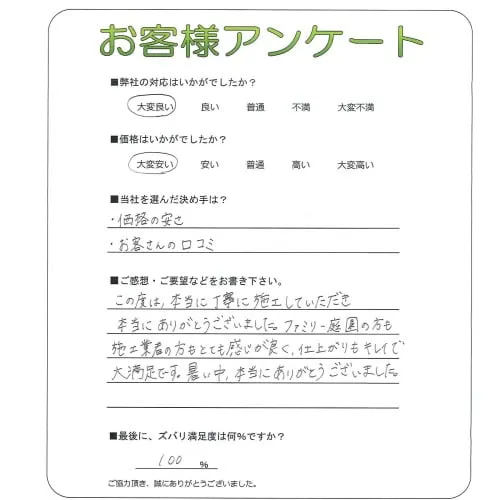 お客様アンケート
■弊社の対応はいかがでしたか？
大変良い 良い 普通 不満 大変不満
■価格はいかがでしたか？
大変安い 安い 普通 高い 大変高い
■当社を選んだ決め手は？
・価格の安さ
・お客さんの口コミ
■ご感想・ご要望などをお書き下さい。
この度は、本当に丁寧に施工していただき
本当にありがとうございました。ファミリー庭園の方も
施工業者の方もとても感じが良く、仕上がりもキレイで
大満足です。暑い中、本当にありがとうございました。
■最後に、ズバリ満足度は何%ですか？
100 %
ご協力頂き、誠にありがとうございました。